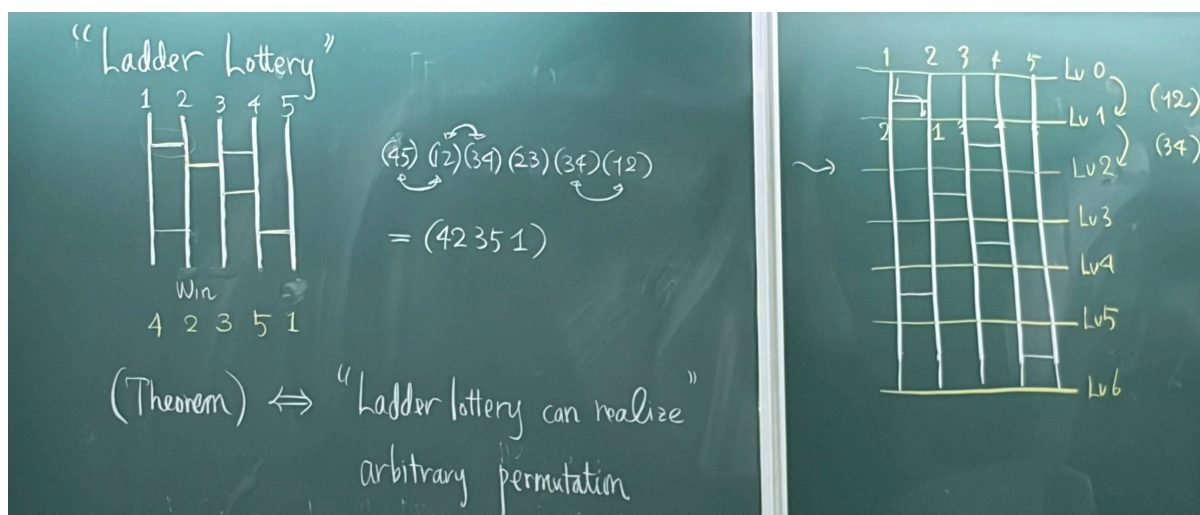 "Ladder Lottery"
1 2 3 4 5
Win
4 2 3 5 1
(45) (12) (34) (23) (34) (12)
= (42351)
(Theorem) ⇔ "Ladder lottery can realize"
arbitrary permutation
1 2 3 4 5
Lv 0
(12)
2 1 3 4
Lv 1
(34)
Lv 2
Lv 3
Lv 4
Lv 5
Lv 6